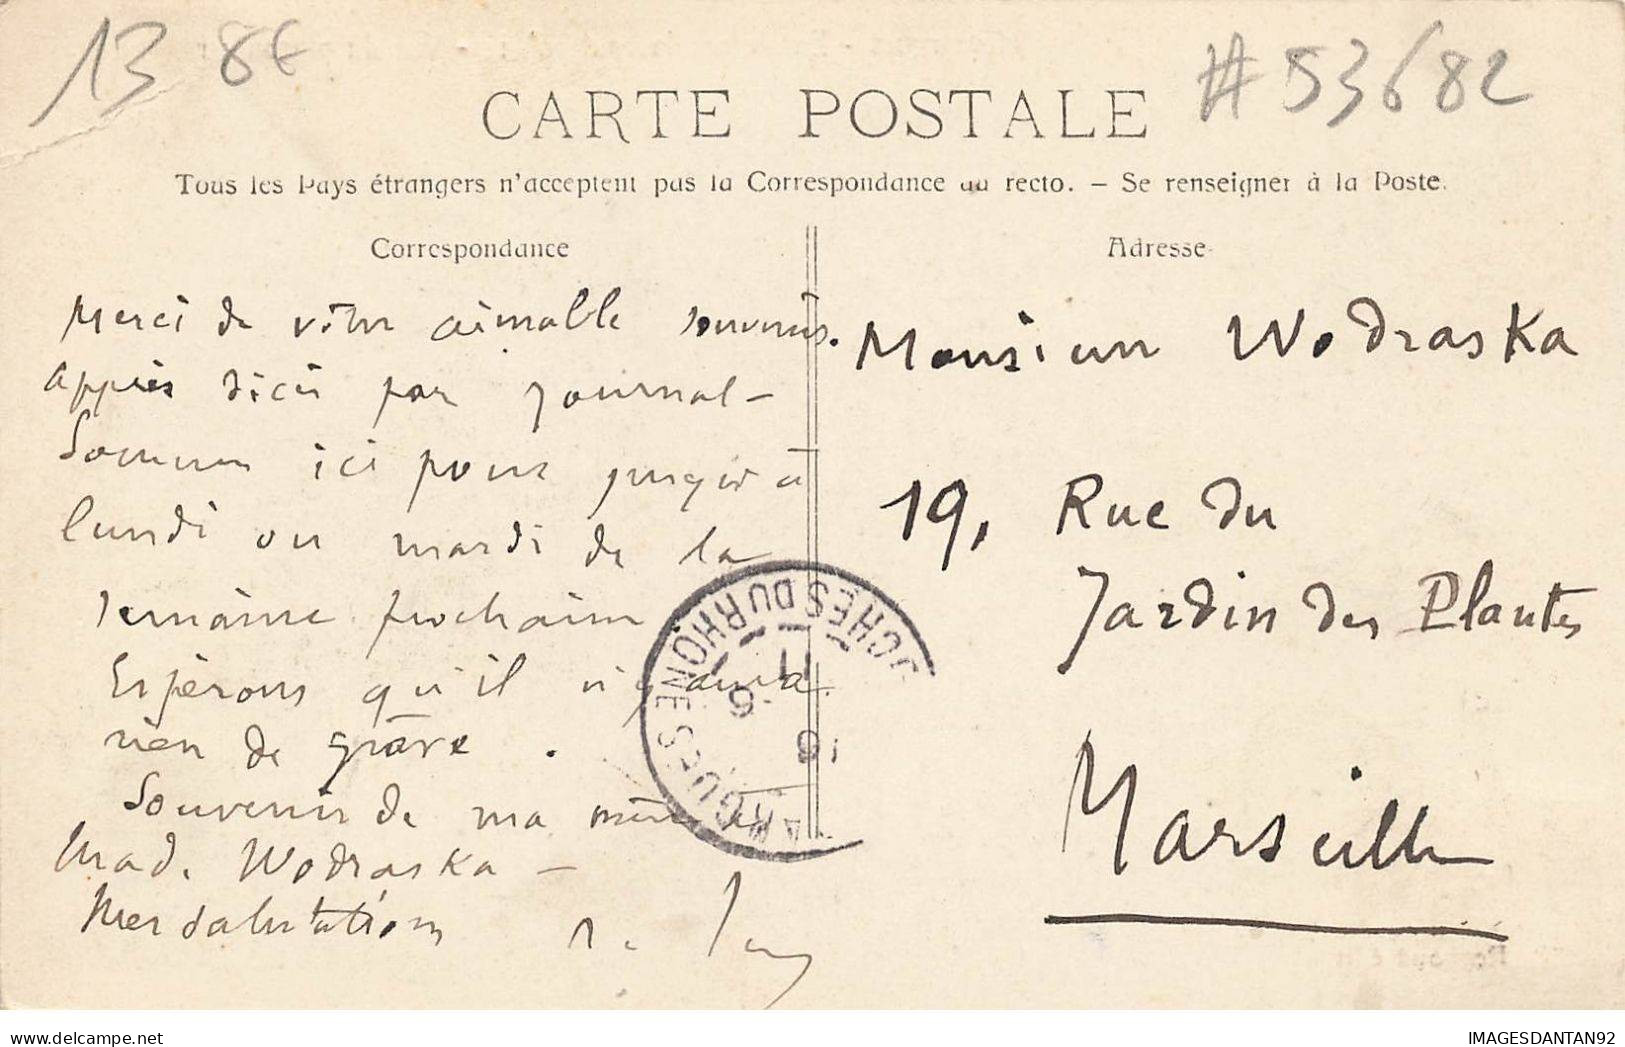 13 8€
#53682
CARTE POSTALE
Tous les Pays étrangers n'acceptent pas la Correspondance au recto. – Se renseigner à la Poste.
Correspondance
Merci de votre aimable souvenir.
Appris décès par journal –
Sommes ici pour jusqu'à
lundi ou mardi de la
semaine prochaine.
Espérons qu'il n'y aura
rien de grave.
Souvenir de ma mère à
Mad. Wodraska –
Mes salutations
Adresse
Monsieur Wodraska
19, Rue du
Jardin des Plantes
Marseille
BOUCHES DU RHONE
11
6
IMAGESDANTAN92